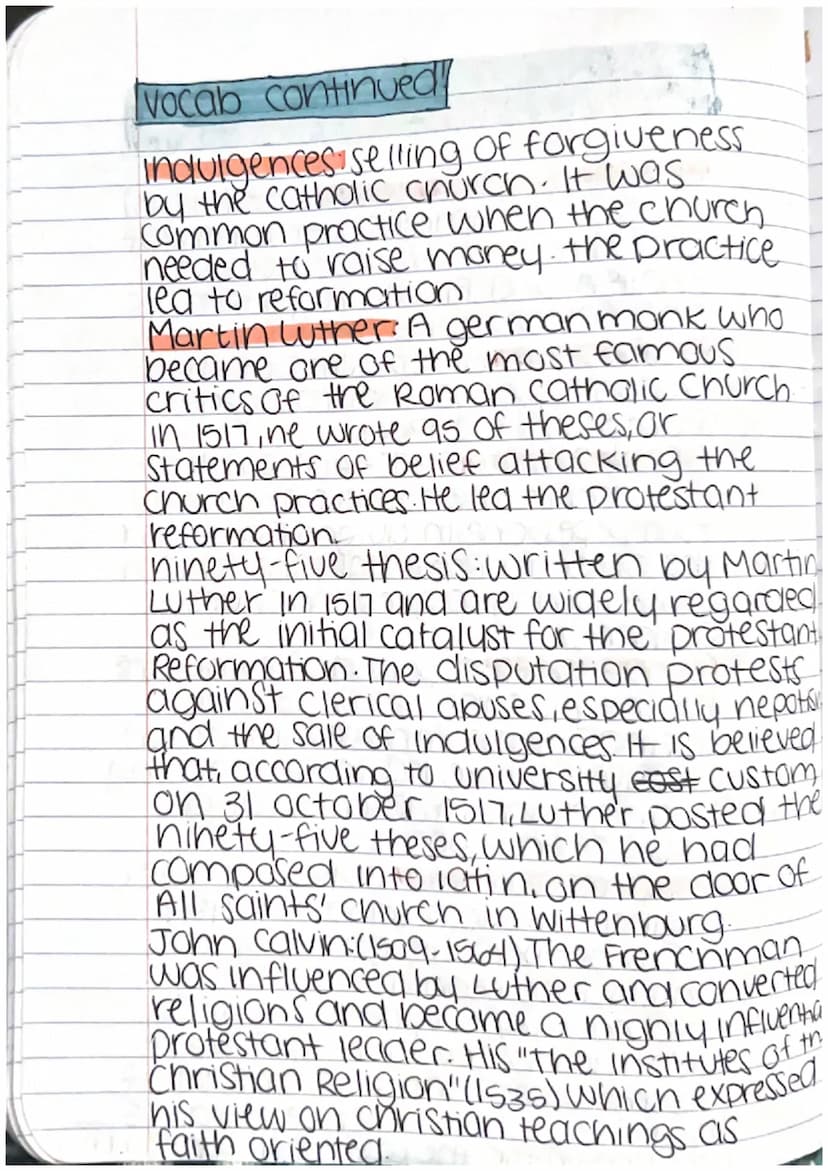 vocab continued!
indulgences: selling of forgiveness
by the catholic church. It was
common practice when the church
needed to raise money. the practice
led to reformation
Martin Luther: A german monk who
became one of the most famous
critics of the Roman Catholic Church
in 1517, he wrote 95 of theses, or
statements of belief attacking the
church practices. He led the protestant
reformation.
ninety-five thesis: written by Martin
Luther in 1517 and are widely regarded
as the initial catalyst for the protestant
Reformation. The disputation protests
against clerical abuses, especially
and the sale of indulgences. It is believed
that, according to university cost custom
on 31 october 1517, Luther posted the
ninety-five theses, which he had
composed into latin, on the door of
All saints' church in Wittenburg.
John Calvin: (1509-1564) The Frenchman
was influenced by Luther and converted
religions and became a highly influentia
protestant leader. His "The institutes of th
Christian Religion" (1535) which expressed
his view on christian teachings as
faith oriented.